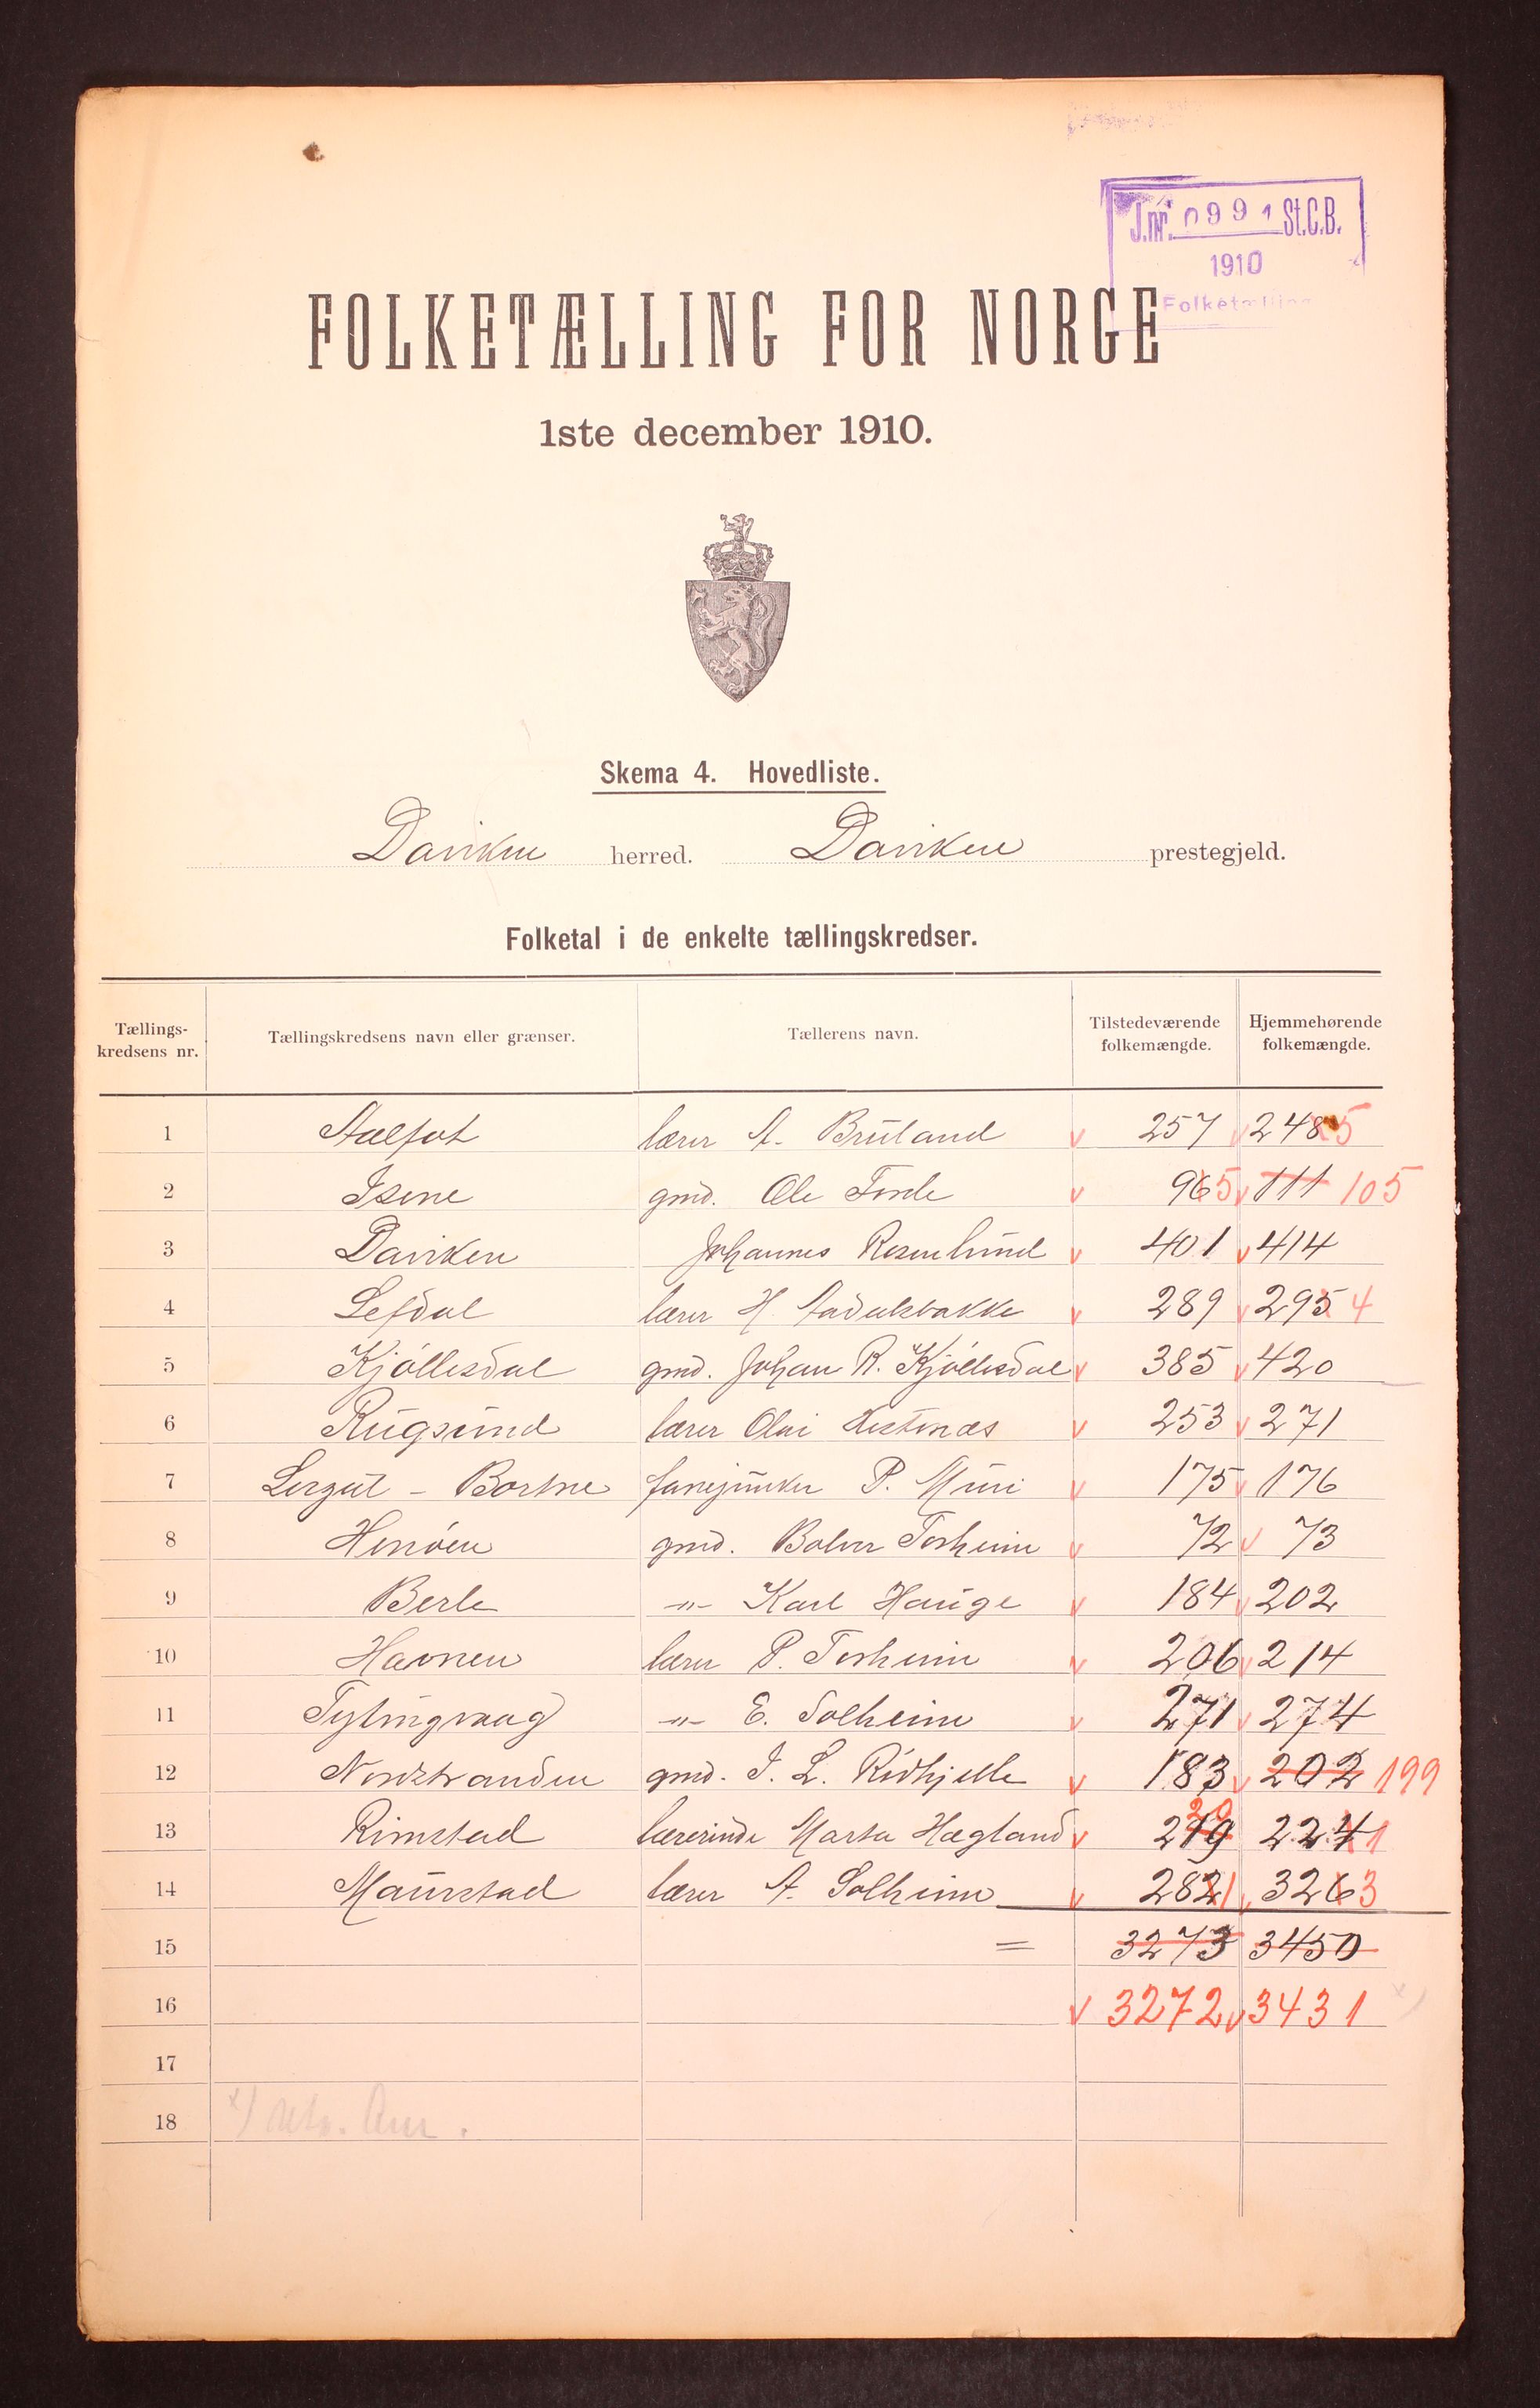 J.nr. 0991 St.C.B.
1910
Folketælling
FOLKETÆLLING FOR NORGE
1ste december 1910.
Skema 4. Hovedliste.
Daviken herred. Daviken prestegjeld.
Folketal i de enkelte tællingskredser.
Tællings-kredsens nr. Tællingskredsens navn eller grænser. Tællerens navn. Tilstedeværende folkemængde. Hjemmehørende folkemængde.
1 Aalfot lærer A. Bruland v 257 v 248 5
2 Isene gmd. Ole Førde v 96 5 v 111 105
3 Daviken Johannes Rosenlund v 401 v 414
4 Lefdal lærer H. v 289 v 295 4
5 Kjöllesdal gmd. Johan R. Kjöllesdal v 385 v 420
6 Rugsund lærer Olai Hestenæs v 253 v 271
7 Lergul - Bortne fanejunker P. Muri v 175 v 176
8 Henöen gmd. Torheim v 72 v 73
9 Berle -"- Karl Hauge v 184 v 202
10 Havnen lærer P. Torheim v 206 v 214
11 Tytingvaag -"- E. Solheim v 271 v 274
12 Nordstranden gmd. I. L. v 183 v 202 199
13 Rimstad lærerinde Marta Hægland v 219 20 224 1
14 Maurstad lærer A. Solheim v 282 1 v 326 3
15 = 3273 3450
16 v 3272 v 3431 x)
17
18 x)